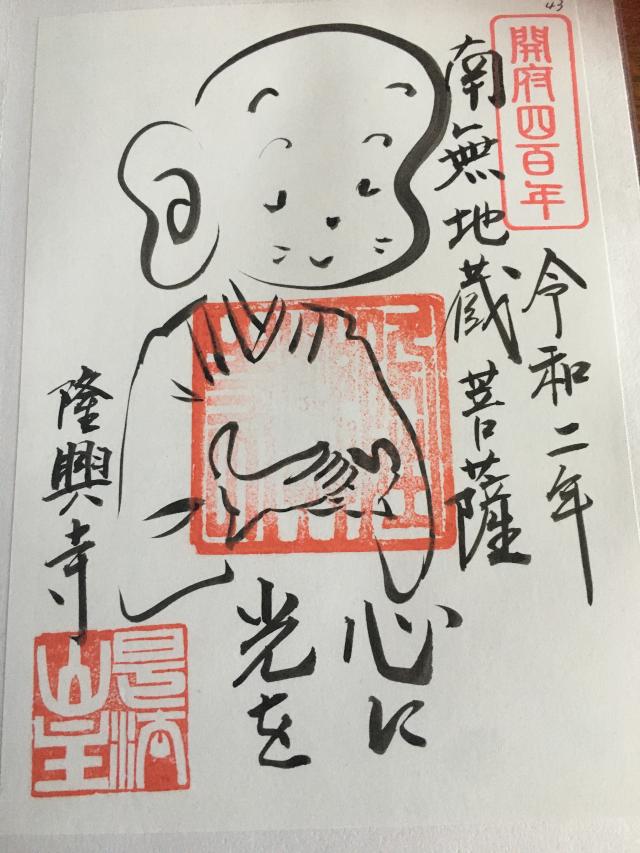 43
開府四百年
令和二年
南無地蔵菩薩
心に
光を
隆興寺